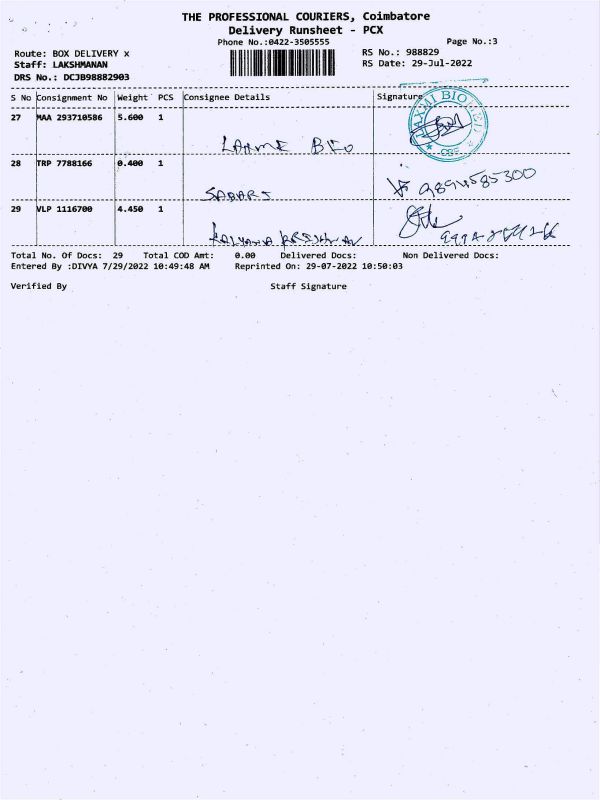 THE PROFESSIONAL COURIERS, Coimbatore
Delivery Runsheet - PCX
Phone No.:0422-3505555
Page No.:3
Route: BOX DELIVERY x
RS No.: 988829
Staff: LAKSHMANAN
RS Date: 29-Jul-2022
DRS No.: DCJB98882903
S No Consignment No Weight PCS Consignee Details Signature
27 MAA 293710586 5.600 1
LAXME BIO
28 TRP 7788166 0.400 1
SABARI 9894585300
29 VLP 1116700 4.450 1
KALYANA KRISHNAN
Total No. Of Docs: 29 Total COD Amt: 0.00 Delivered Docs: Non Delivered Docs:
Entered By :DIVYA 7/29/2022 10:49:48 AM Reprinted On: 29-07-2022 10:50:03
Verified By Staff Signature